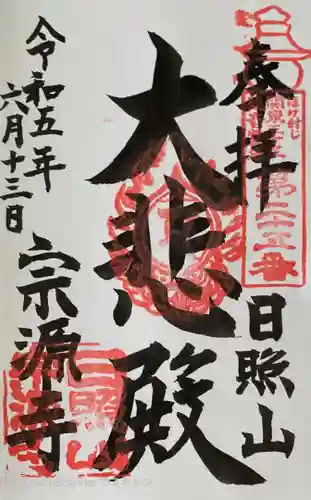 奉拝
第二十五番
日照山
大悲殿
宗源寺
令和五年
六月十三日